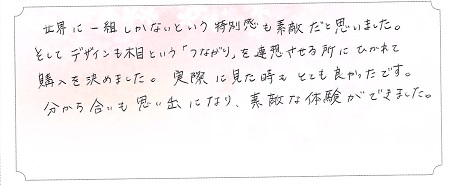 世界に一組しかないという特別感も素敵だと思いました。
そしてデザインも木目という「つながり」を連想させる所にひかれて
購入を決めました。実際に見た時もとても良かったです。
分かち合いも思い出になり、素敵な体験ができました。